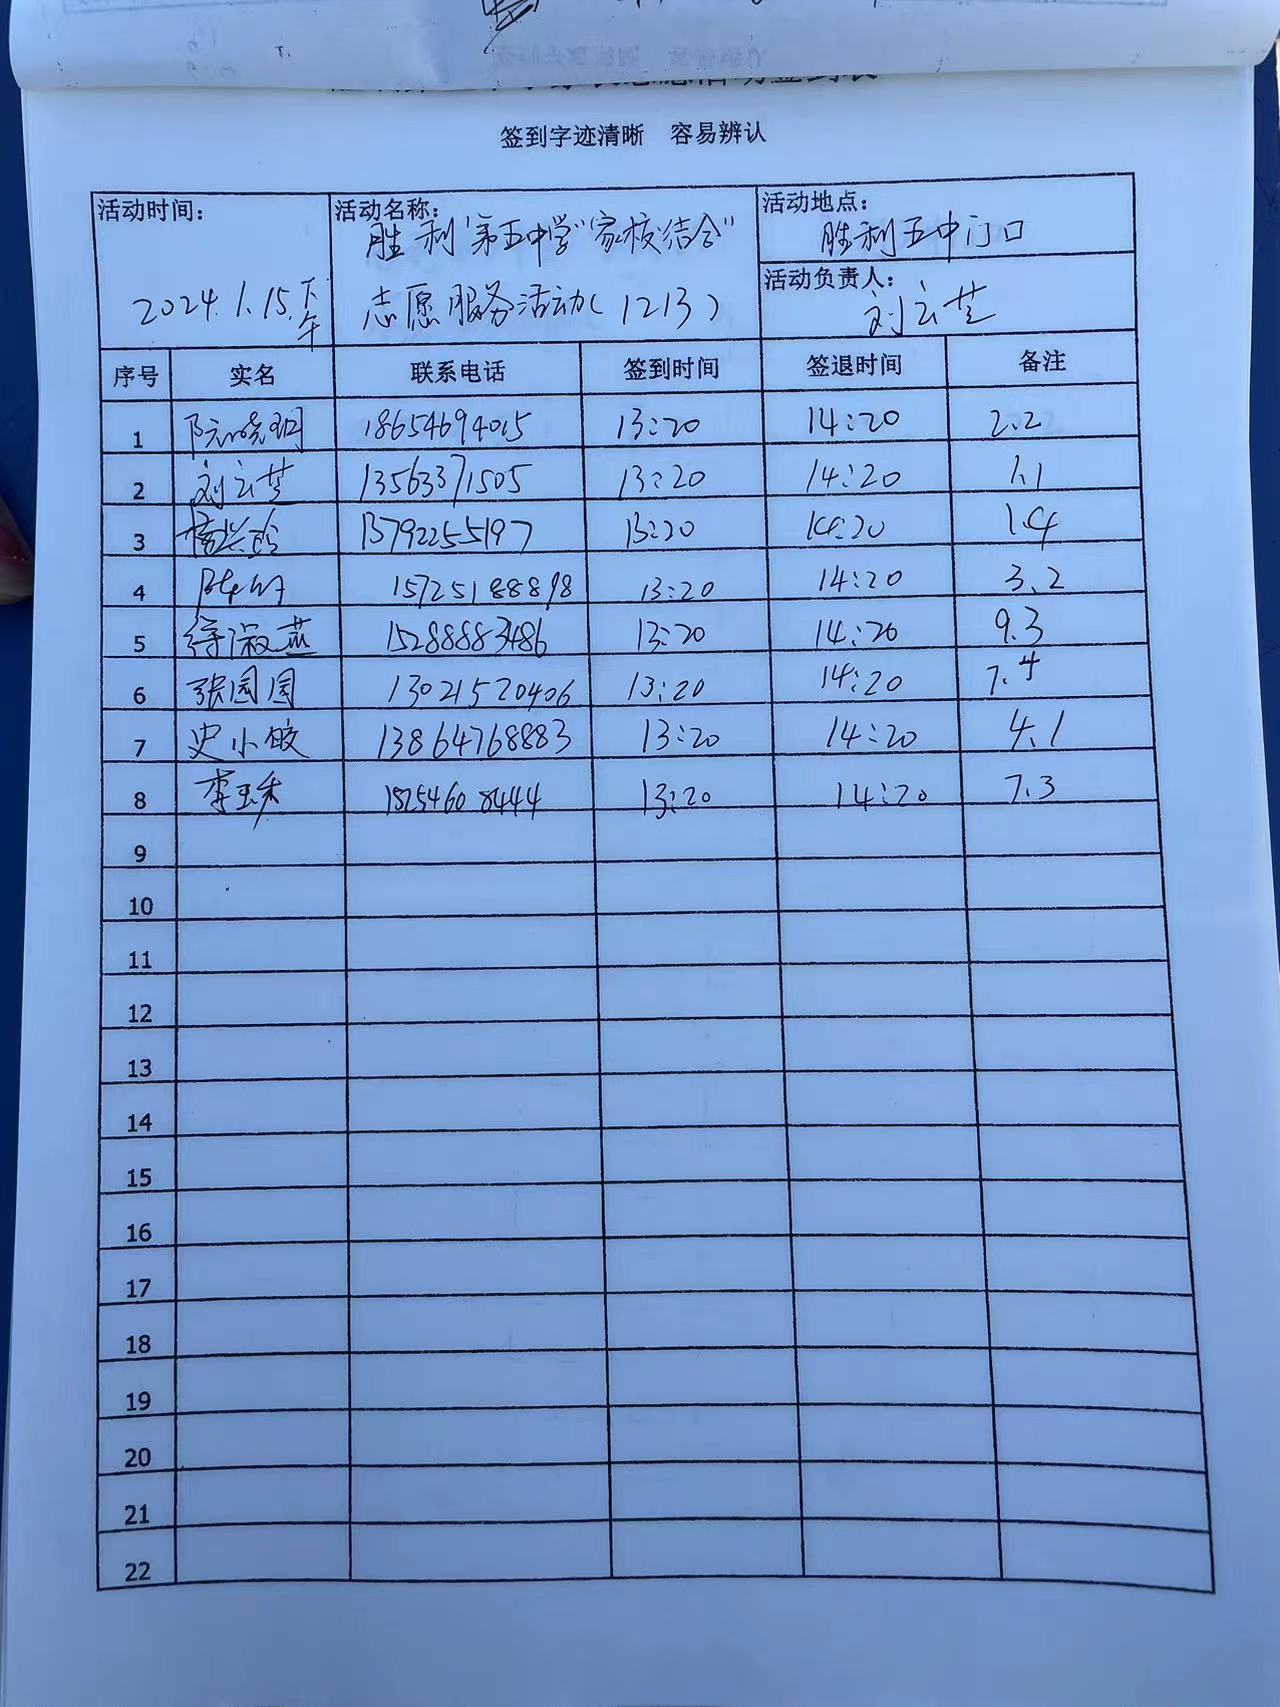 签到字迹清晰 容易辨认
活动时间:
2024.1.15.下午
活动名称:
胜利第五中学"家校结合"
志愿服务活动(1213)
活动地点:
胜利五中门口
活动负责人:
刘云芝
序号 实名 联系电话 签到时间 签退时间 备注
1 阮晓玥 18654694015 13:20 14:20 2.2
2 刘云芝 13563371505 13:20 14:20 1.1
3 13792255197 13:20 14:20 1.4
4 15725188898 13:20 14:20 3.2
5 徐淑燕 15288883486 13:20 14:20 9.3
6 张园园 13021520406 13:20 14:20 7.4
7 史小皎 13864768883 13:20 14:20 4.1
8 李玉秀 18254608444 13:20 14:20 7.3
9
10
11
12
13
14
15
16
17
18
19
20
21
22